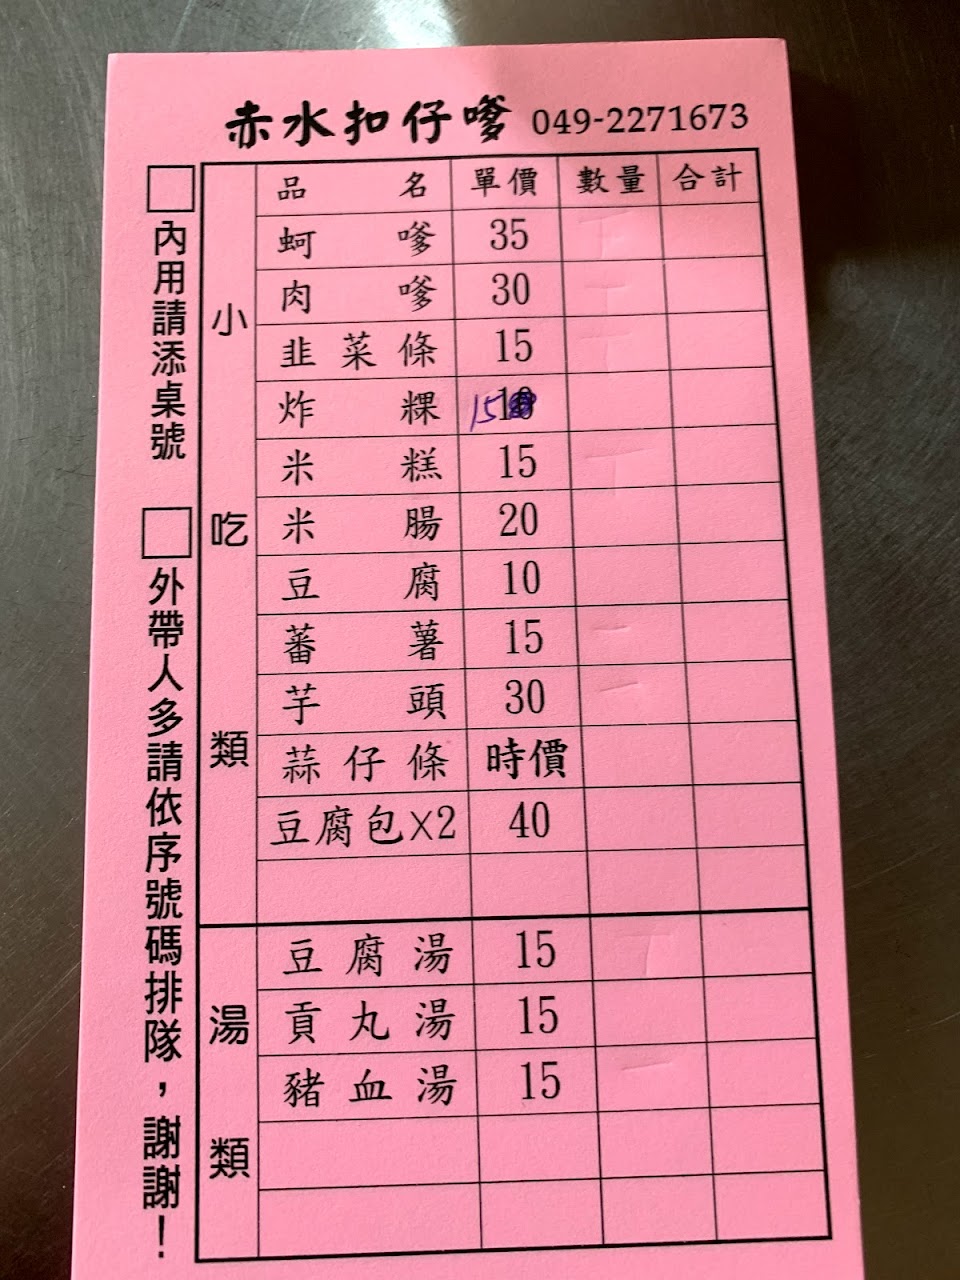 赤水扣仔嗲 049-2271673
內用請添桌號
外帶人多請依序號碼排隊,謝謝!
品名 單價 數量 合計
小吃類
蚵嗲 35
肉嗲 30
韭菜條 15
炸粿 15 10
米糕 15
米腸 20
豆腐 10
蕃薯 15
芋頭 30
蒜仔條 時價
豆腐包X2 40
湯類
豆腐湯 15
貢丸湯 15
豬血湯 15